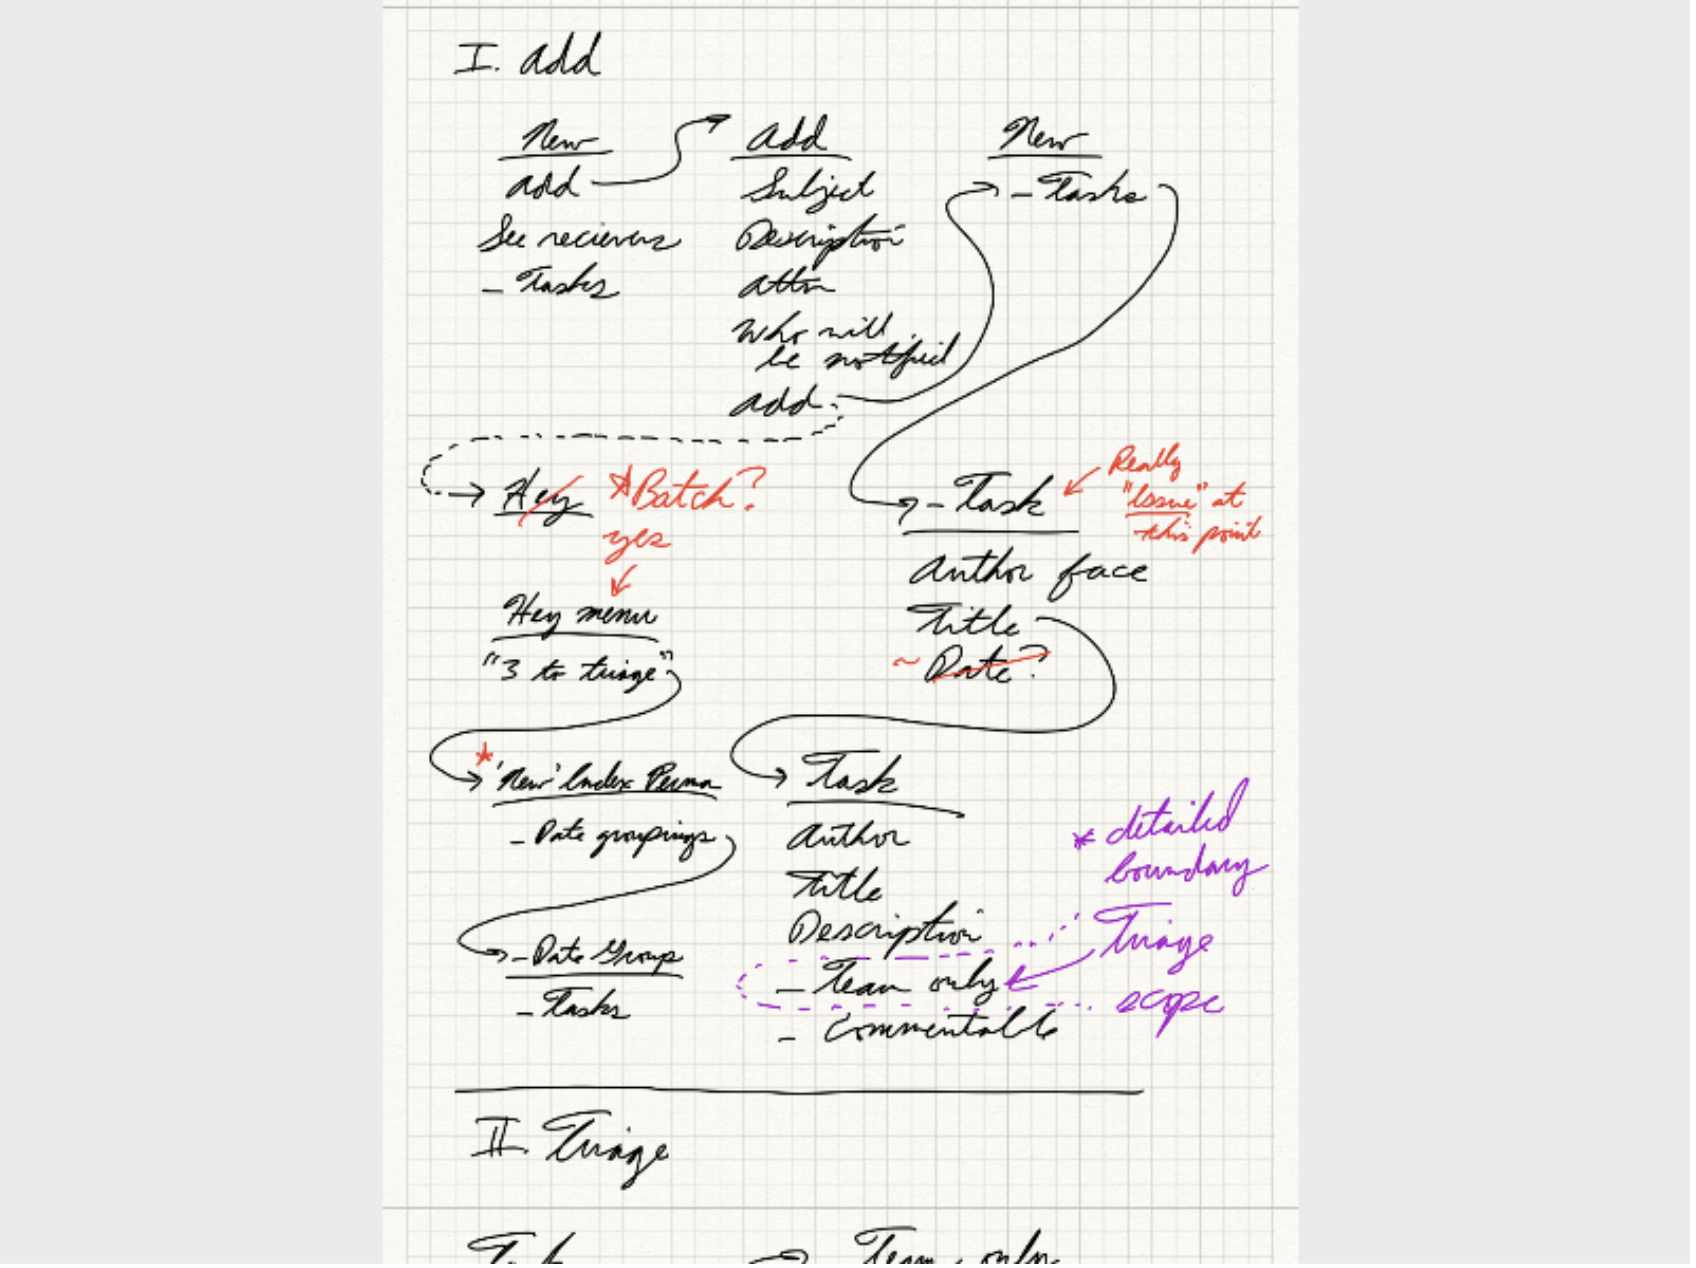 I. Add
New
add
See recievers
- Tasks
Add
Subject
Description
attn
Who will
be notified
add
New
- Tasks
Hey
*Batch?
yes
Hey menu
"3 to triage"
* 'New' Index Perma
- Date groupings
- Date Group
- Tasks
- Task
Really
"Issue" at
this point
Author face
Title
~ Date?
Task
Author
Title
Description
- Team only
- Commentable
* detailed
boundary
Triage
scope
II. Triage
Team only